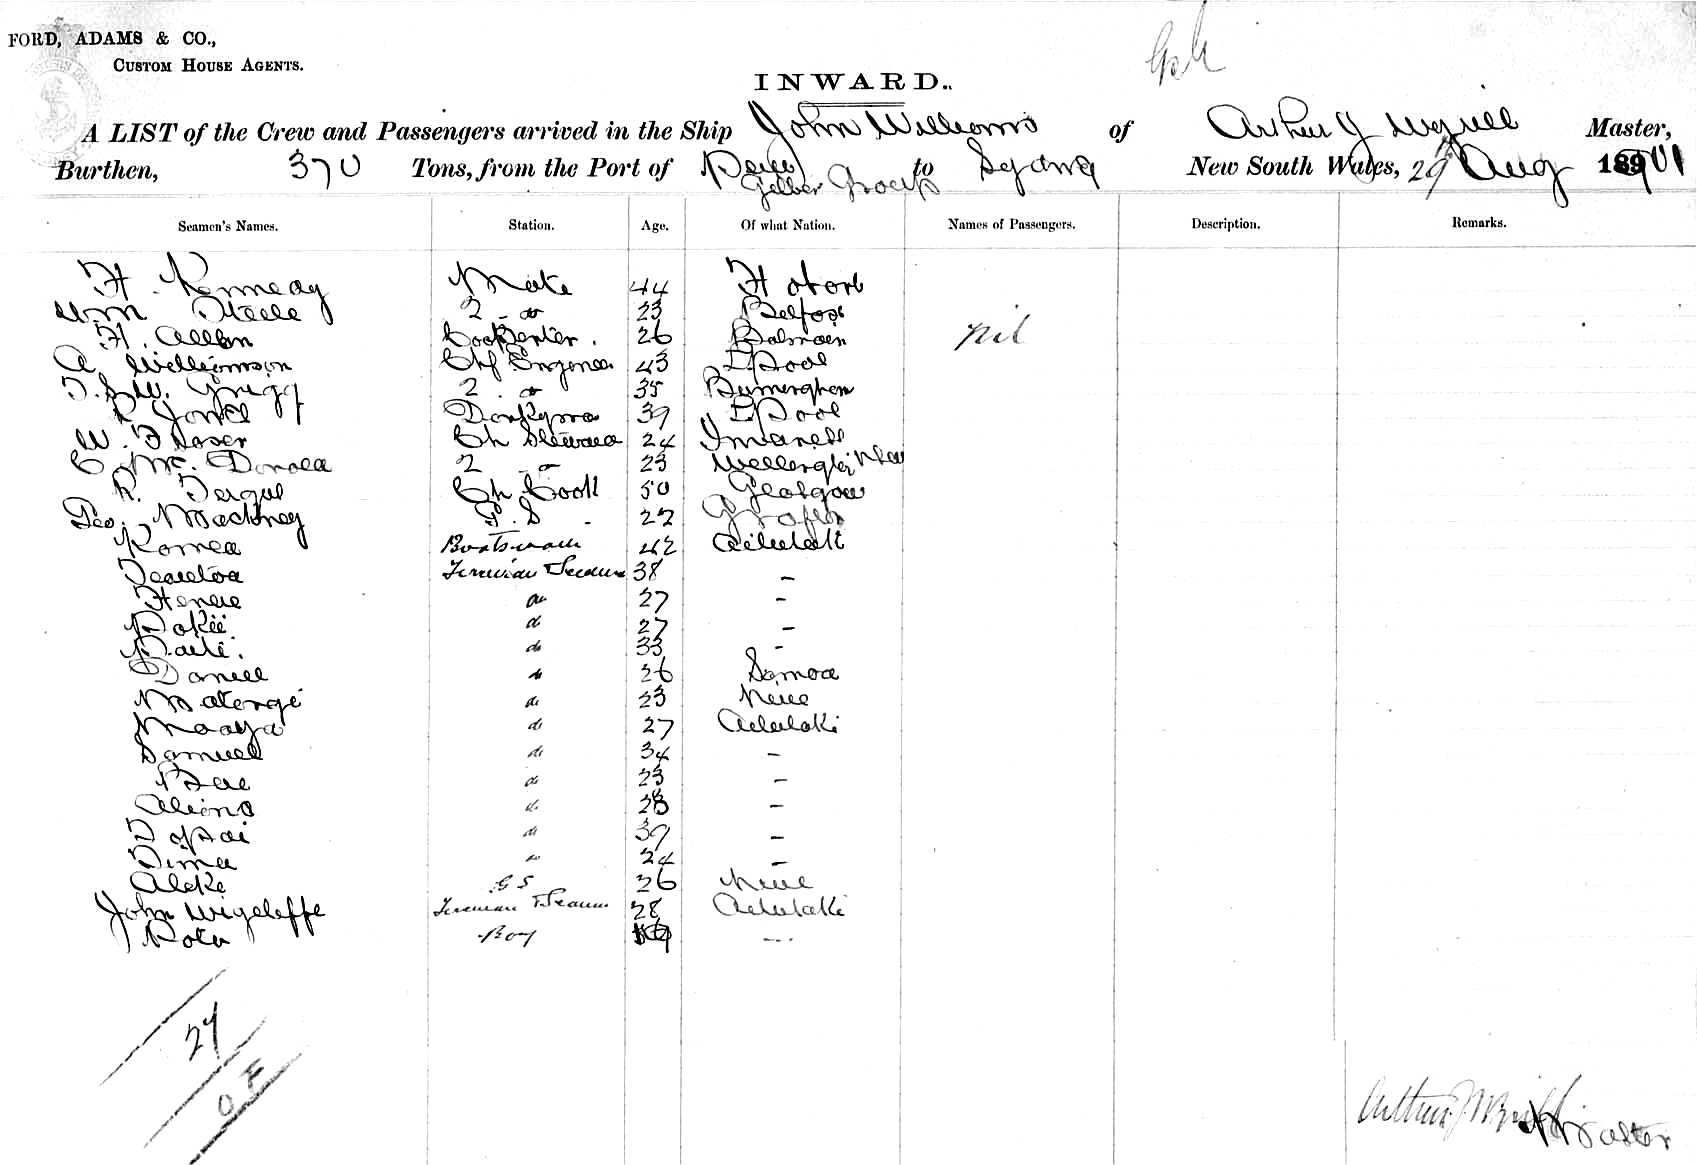 FORD, ADAMS & CO.,
CUSTOM HOUSE AGENTS.
INWARD.
A LIST of the Crew and Passengers arrived in the Ship John Williams of Arthur J Master,
Burthen, 370 Tons, from the Port of Peru Gilbert Group to Sydney New South Wales, 29 Aug 1901
Seamen's Names. Station. Age. Of what Nation. Names of Passengers. Description. Remarks.
H. Kennedy Mate 44 Hobart
Wm Steele 2 - do 23 Belfast
H. Allen 26 Balmain nil
A Williamson Chf Engineer 43 L'Pool
T. S. W. Grigg 2 . do 35 Birmingham
R Jones Donkyman 39 L'Pool
W. Fraser Ch Steward 24 Inverness
C Mc. Donald 2 - do 23 Wellington
R. Fergus Ch Cook 50 Glasgow
Geo. Mackney G. S - 22 Grafton
Komea Boatswain 42 Aitutaki
Fireman & Seaman 38 -
do 27 -
Pokii do 27 -
do 33 -
Daniel do 26 Samoa
Matengi do 23 Niue
Maaya do 27 Aitutaki
Samuel do 34 -
do 23 -
do 23 -
do 39 -
Tima do 24 -
G S 26 Niue
John Wigcliffe Fireman & Seaman 28 Aitutaki
Boy ---
27
Arthur J Master